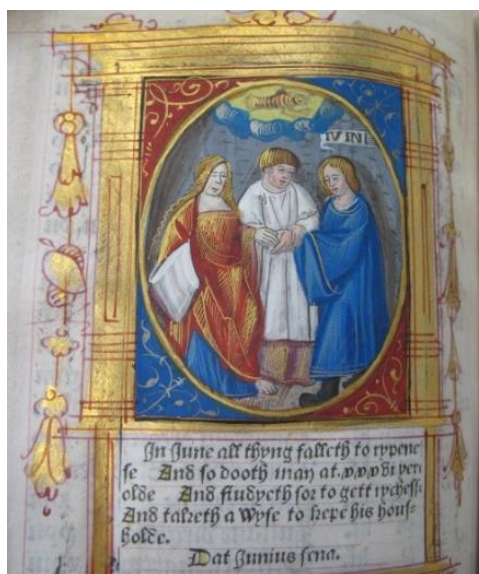 IVNI
In June all thyng falleth to rypene
se And so dooth man at.xxxvi yere
olde And studyeth for to gett rychesse
And taketh a wyfe to kepe his hous-
holde.
Dat Junius fena.